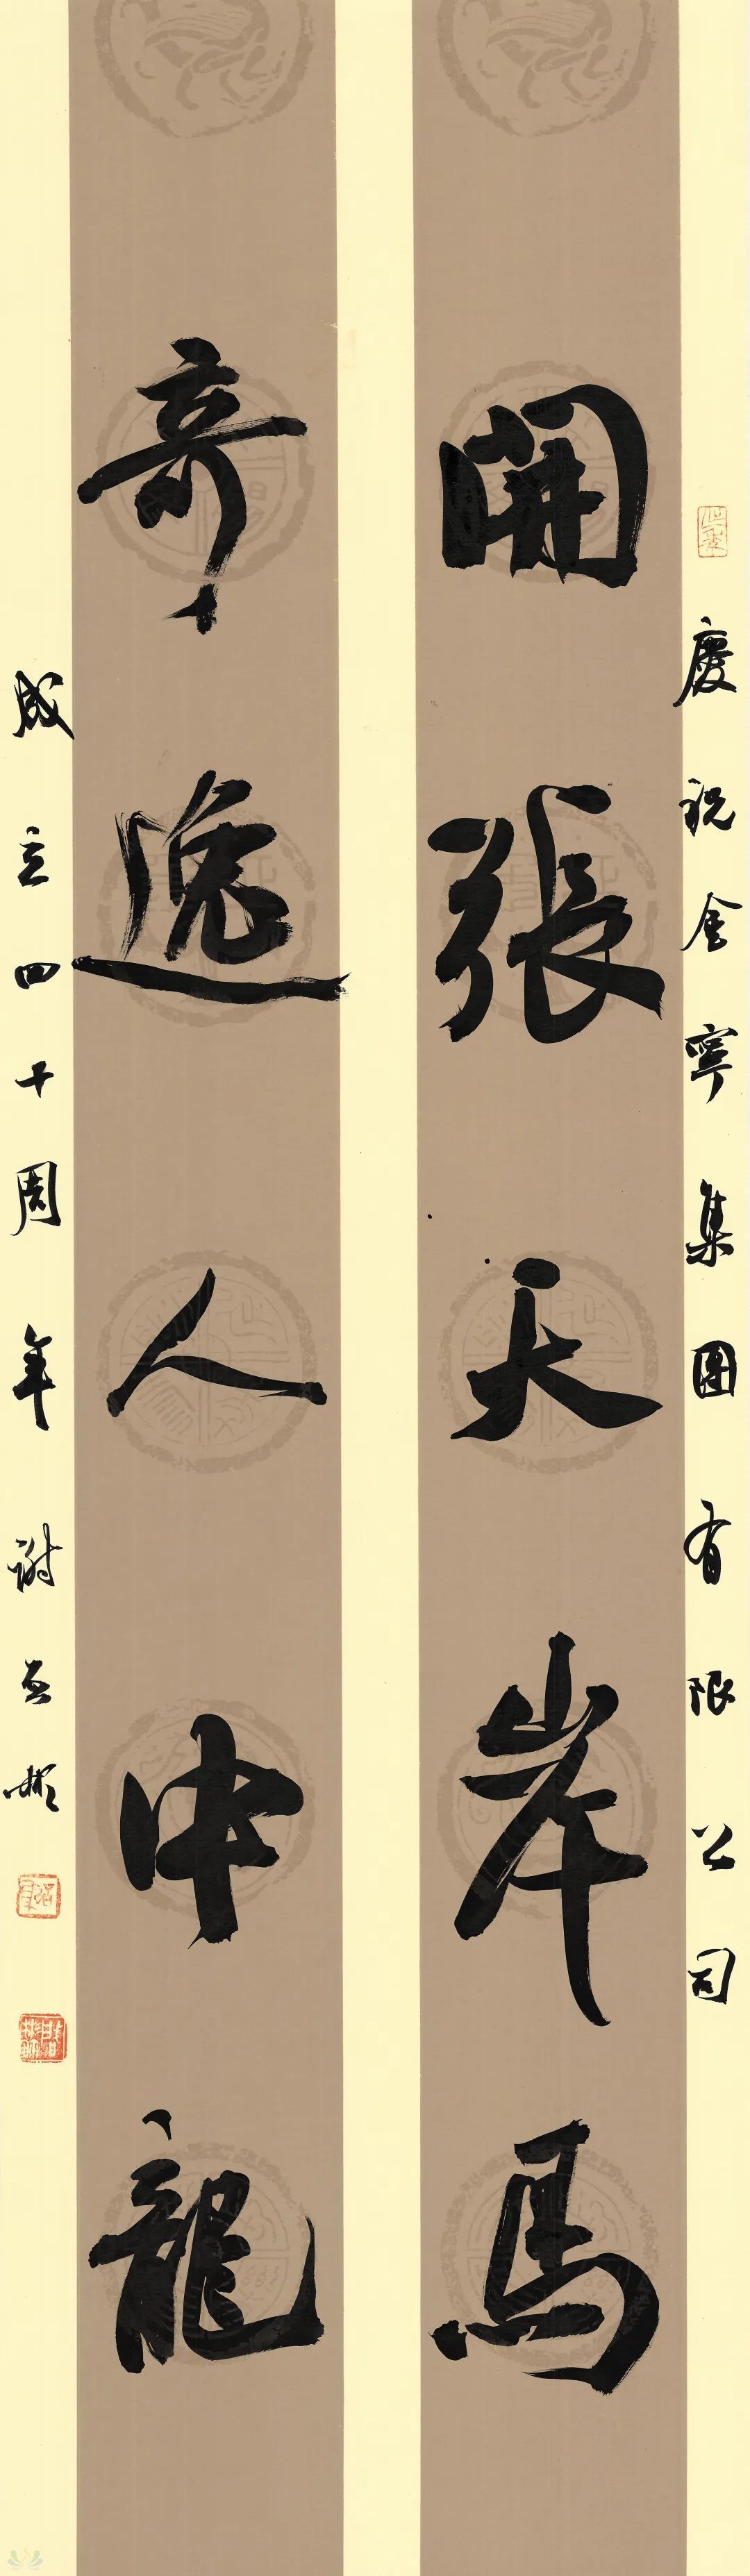 慶祝金寧集團有限公司
開張天岸馬
奇逸人中龍
成立四十周年謝